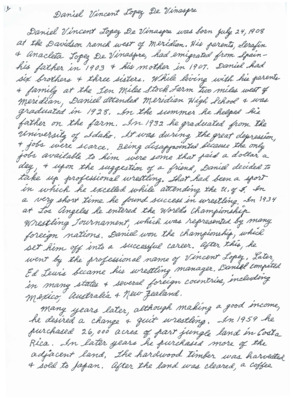 Daniel Vincent Lopez De Vinaspre
Daniel Vincent Lopez De Vinaspre was born July 24, 1908
at the Davidson ranch west of Meridian. His parents, Serafin
& Anacleta Lopez De Vinaspre, had emigrated from Spain -
his father in 1903 & his mother in 1907. Daniel had
six brothers & three sisters. While living with his parents
& family at the Ten Mile Stock Farm two miles west of
Meridian, Daniel attended Meridian High School & was
graduated in 1928. In the summer he helped his
father on the farm. In 1932 he graduated from the
University of Idaho. It was during the great depression,
& jobs were scarce. Being disappointed because the only
jobs available to him were some that paid a dollar a
day, & upon the suggestion of a friend, Daniel decided to
take up professional wrestling. That had been a sport
in which he excelled while attending the U. of I. In
a very short time he found success in wrestling. In 1934
at Los Angeles he entered the World Championship
Wrestling Tournament which was represented by many
foreign nations. Daniel won the championship, which
set him off into a successful career. After this, he
went by the professional name of Vincent Lopez. Later
Ed Lewis became his wrestling manager. Daniel competed
in many states & several foreign countries, including
Mexico, Australia & New Zealand.
Many years later, although making a good income,
he desired a change & quit wrestling. In 1959 he
purchased 26,000 acres of part jungle land in Costa
Rica. In later years he purchased more of the
adjacent land. The hardwood timber was harvested
& sold to Japan. After the land was cleared, a coffee